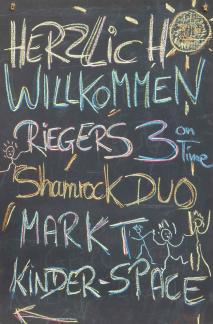 HERZLICH
WILLKOMMEN
RIEGERS 3 on Time
Shamrock DUO
MARKT
KINDER-SPACE